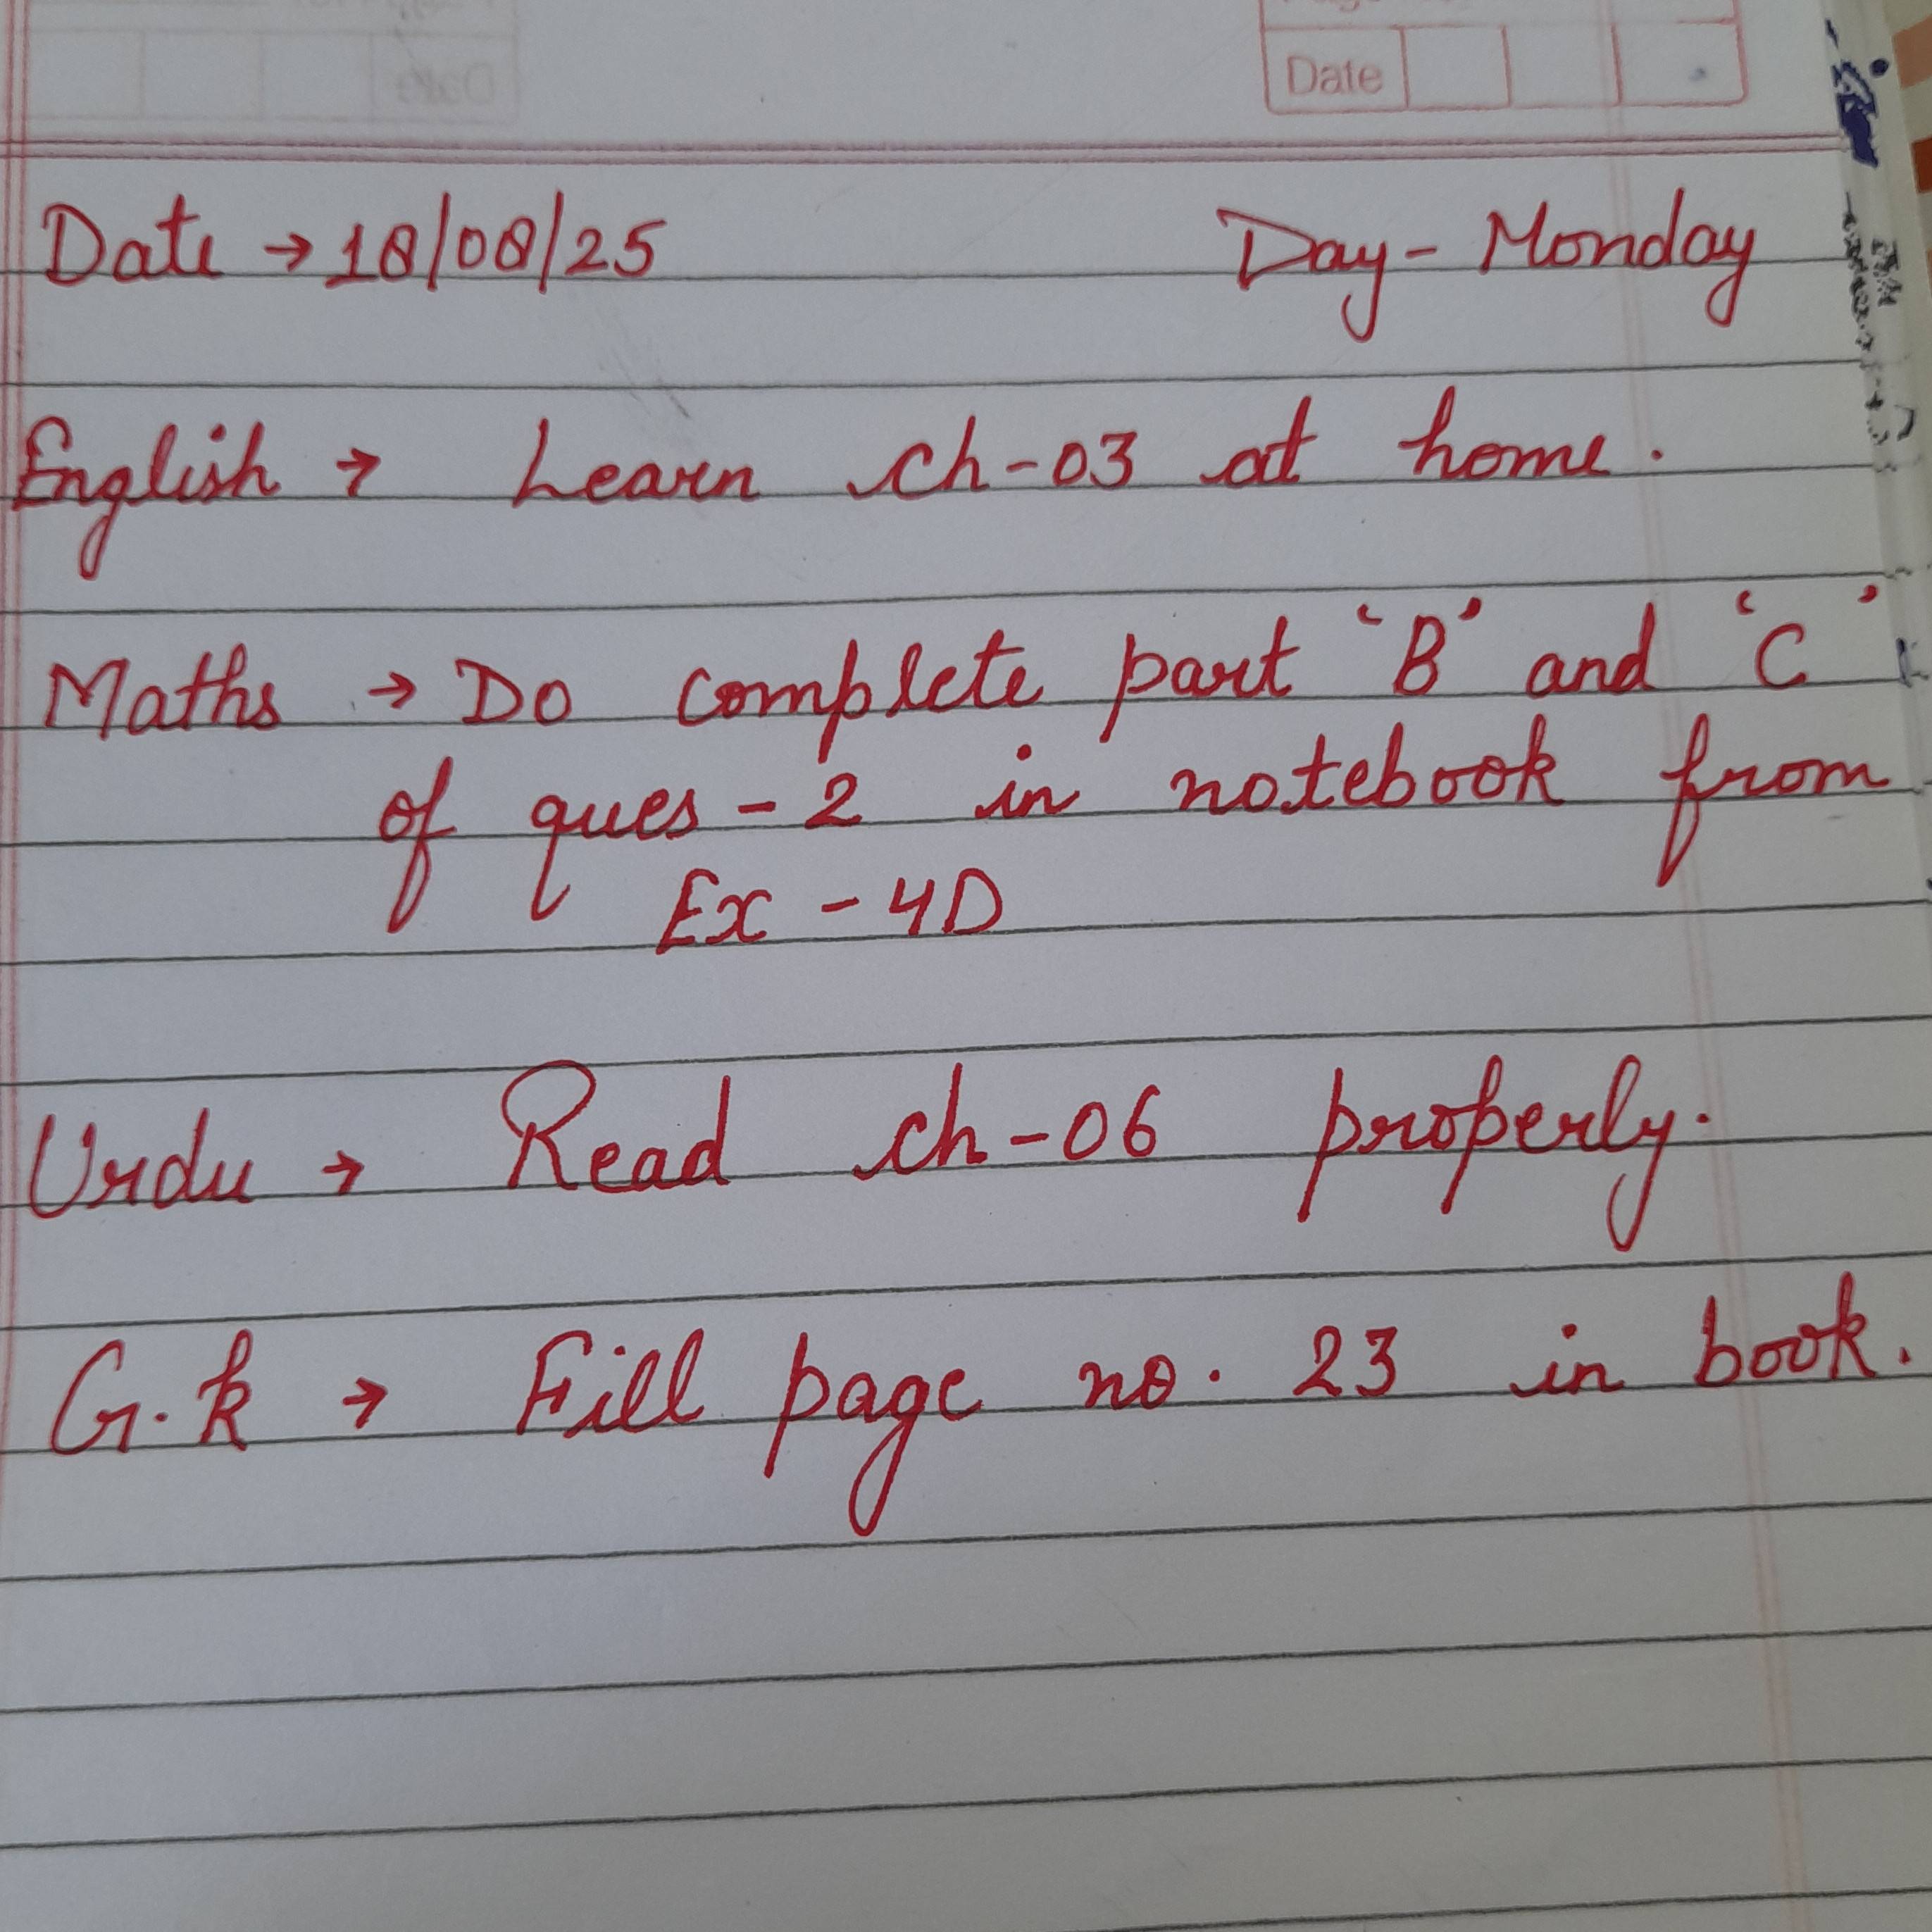 Date
Date → 18/08/25 Day - Monday
English → Learn ch-03 at home.
Maths → Do complete part 'B' and 'C'
of ques - 2 in notebook from
Ex - 4D
Urdu → Read ch-06 properly.
G.k → Fill page no. 23 in book.